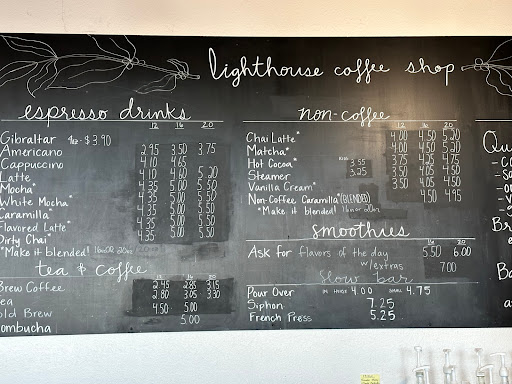 lighthouse coffee shop
espresso drinks
12 16 20
Gibraltar 4oz - $3.90
Americano 2.95 3.50 3.75
Cappuccino 4.10 4.65
Latte 4.10 4.60 5.20
Mocha* 4.35 5.00 5.50
White Mocha* 4.35 5.00 5.50
Caramilla* 4.35 5.00 5.50
Flavored Latte* 4.35 5.00 5.50
Dirty Chai* 4.35 5.00 5.50
*Make it blended! 16 or 20oz
tea & coffee
12 16 20
Brew Coffee 2.45 2.85 3.15
Tea 2.80 3.05 3.30
old Brew 4.50 5.00
ombucha 5.00
non-coffee
12 16 20
Chai Latte* 4.00 4.50 5.20
Matcha* 4.00 4.50 5.20
Hot Cocoa* Kids 3.55 3.75 4.25 4.75
Steamer 3.25 3.50 4.05 4.50
Vanilla Cream* 3.50 4.05 4.50
Non-Coffee Caramilla* (BLENDED) 4.50 4.95
*Make it blended! 16 or 20oz
smoothies
16 20
Ask for flavors of the day 5.50 6.00
w/extras 7.00
Slow bar
Pour Over IN HOUSE 4.00 4.75
Siphon 7.25
French Press 5.25
Qu